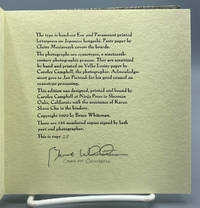 The type is hand-set Eve and Paramount printed
letterpress on Japanese hosyoshi. Paste paper by
Claire Maziarczyk covers the boards.
The photographs are cyanotypes, a nineteenth-
century photographic process. They are sensitized
by hand and printed on Velke Losiny paper by
Carolee Campbell, the photographer. Acknowledge-
ment goes to Jon Pietruch for his good counsel on
cyanotype processing.
This edition was designed, printed and bound by
Carolee Campbell at Ninja Press in Sherman
Oaks, California with the assistance of Karen
Skove Chu in the bindery.
Copyright by Bruce Whiteman.
There are numbered copies signed by both
poet and photographer.
This is copy
Bruce Whiteman
Carolee Campbell